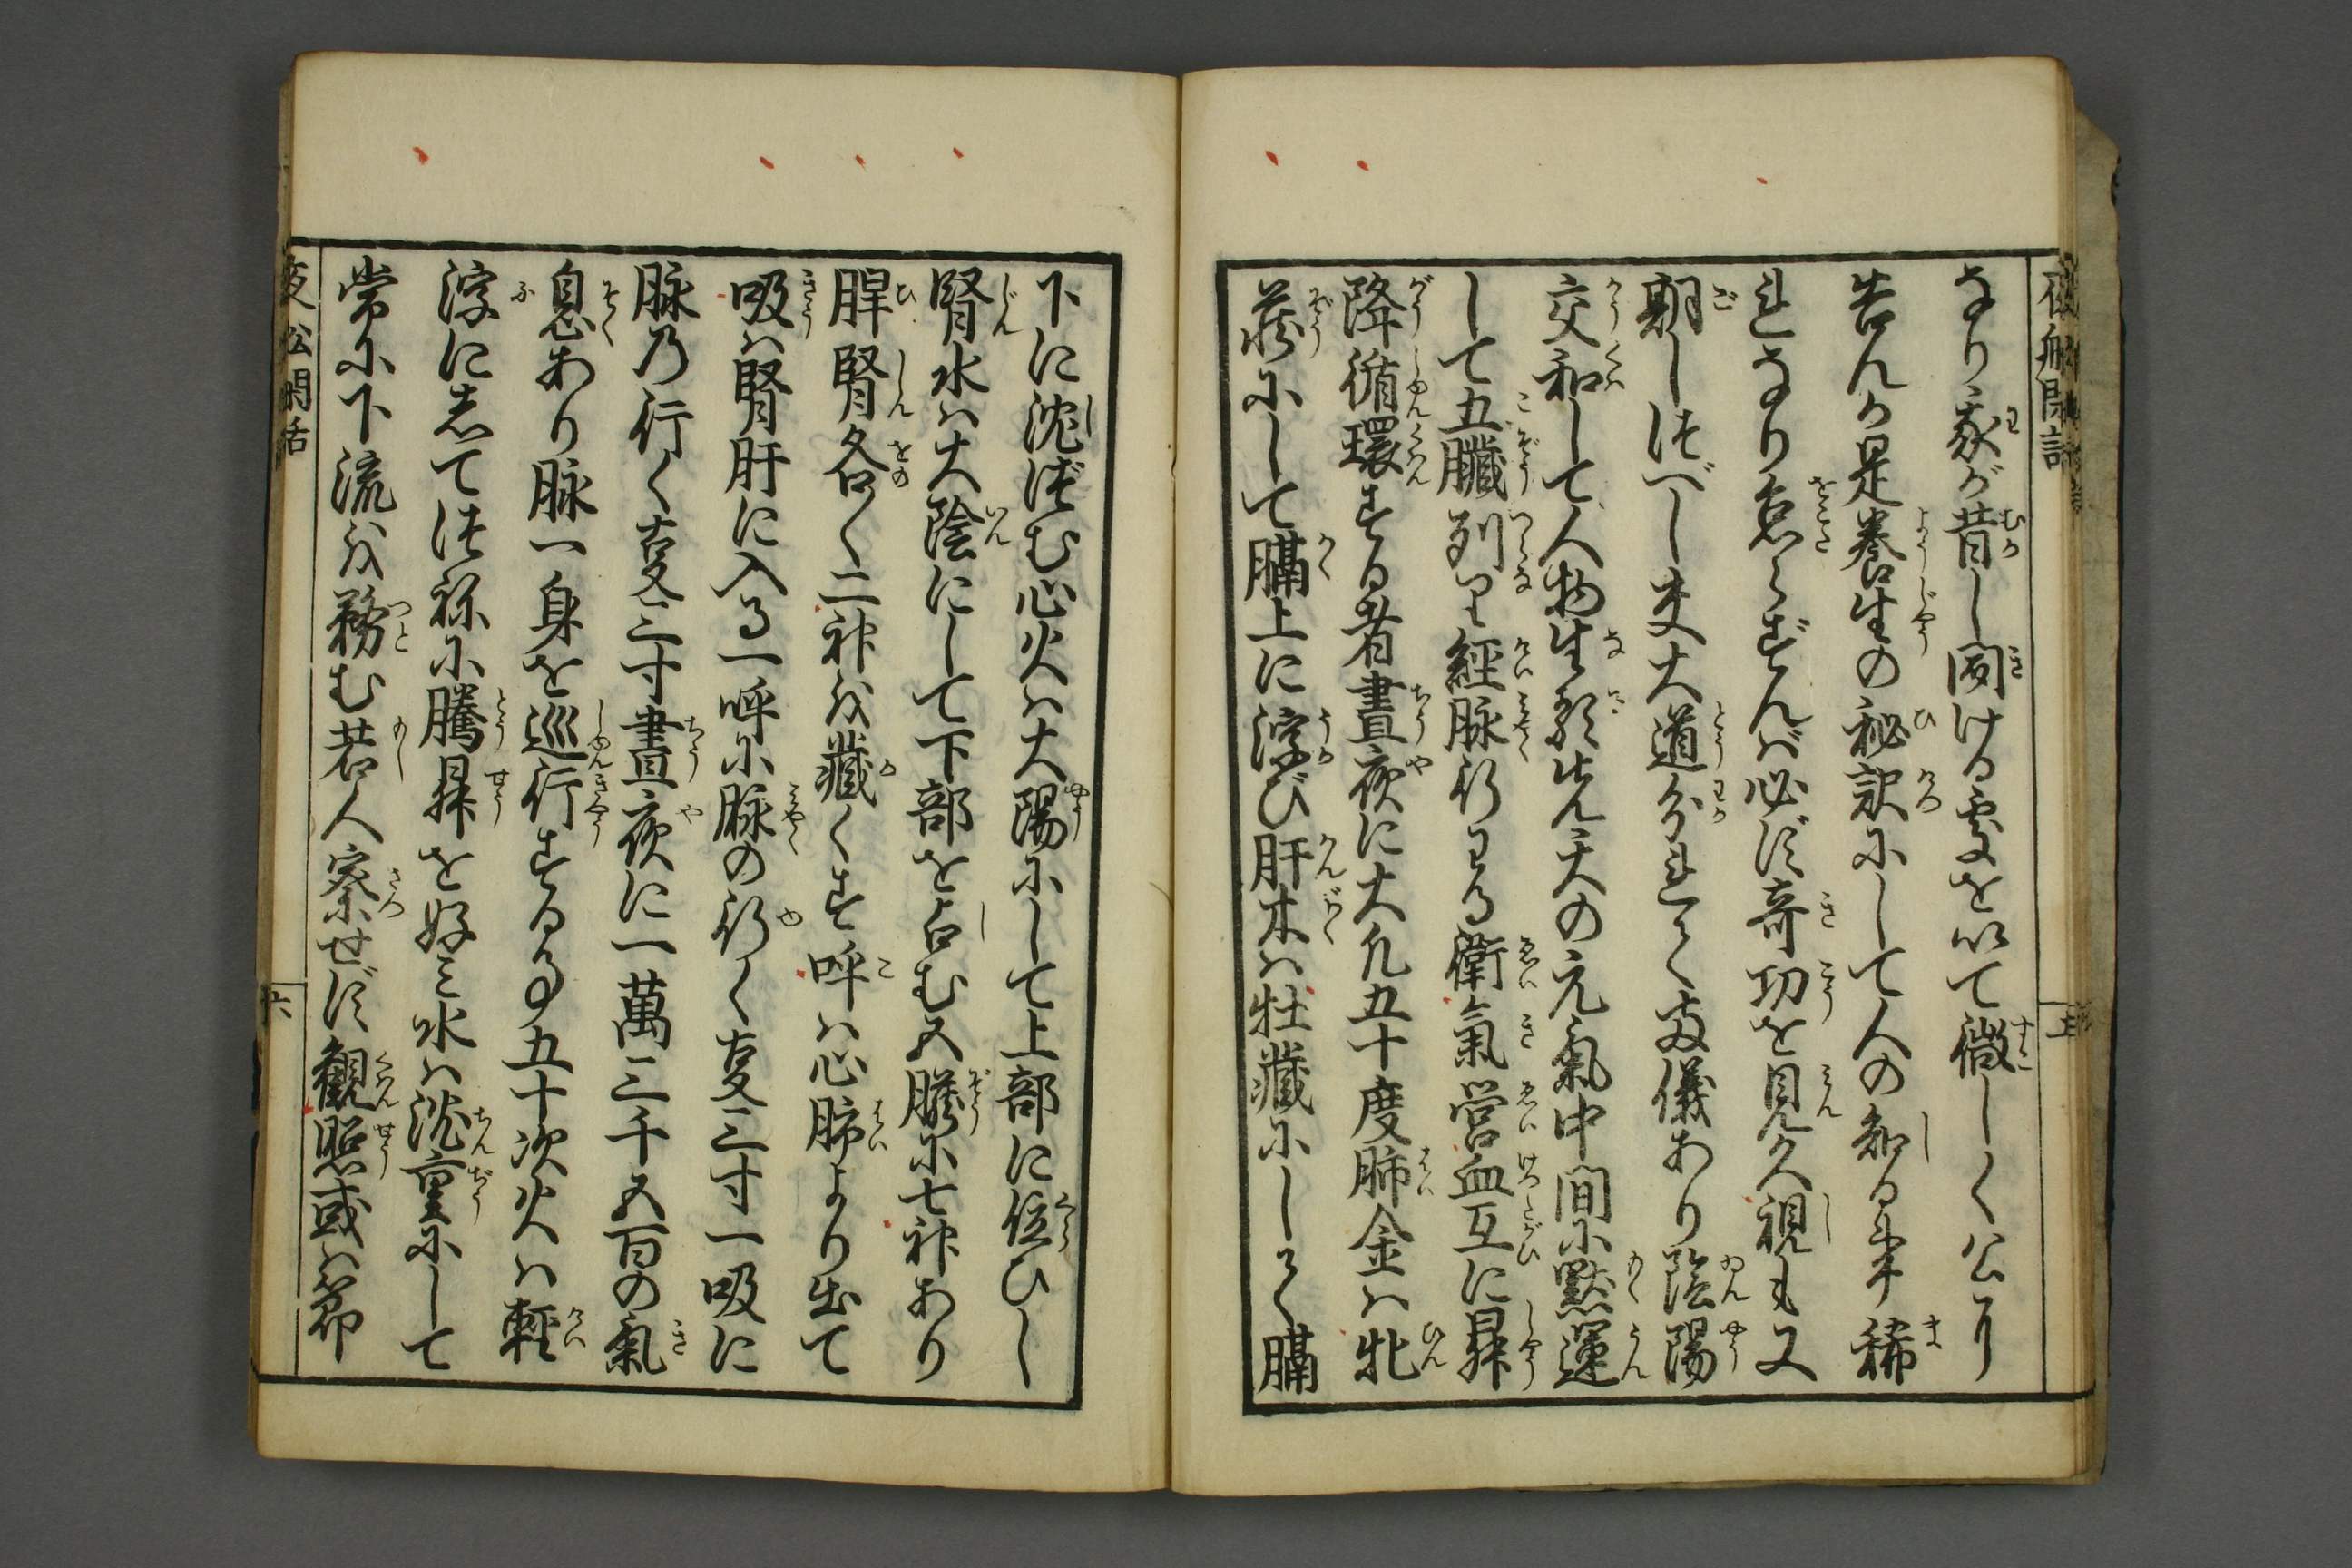 夜船閑話
五
なり我が昔し聞ける處を以て微しく公に
告んか是養生の秘訣にして人の知る事稀
れなり怠らずんば必ず奇功を見久視も又
期しつべし夫大道分れて両儀あり陰陽
交和して人物生る先天の元氣中間に默運
して五臓列り經脉行わる衛氣営血互に昇
降循環する者晝夜に大凡五十度肺金は牝
蔵にして膈上に浮び肝木は牡藏にして膈
下に沈づむ心火は大陽にして上部に位ひし
腎水は大陰にして下部を占む五臓に七神あり
脾腎各く二神を藏くす呼は心肺より出て
吸は腎肝に入る一呼に脉の行く事三寸一吸に
脉乃行く事三寸晝夜に一萬三千五百の氣
息あり脉一身を巡行する事五十次火は輕
浮にしてつねに騰昇を好み水は沈重にして
常に下流を務む若人察せず観照或は節
夜船閑話
六